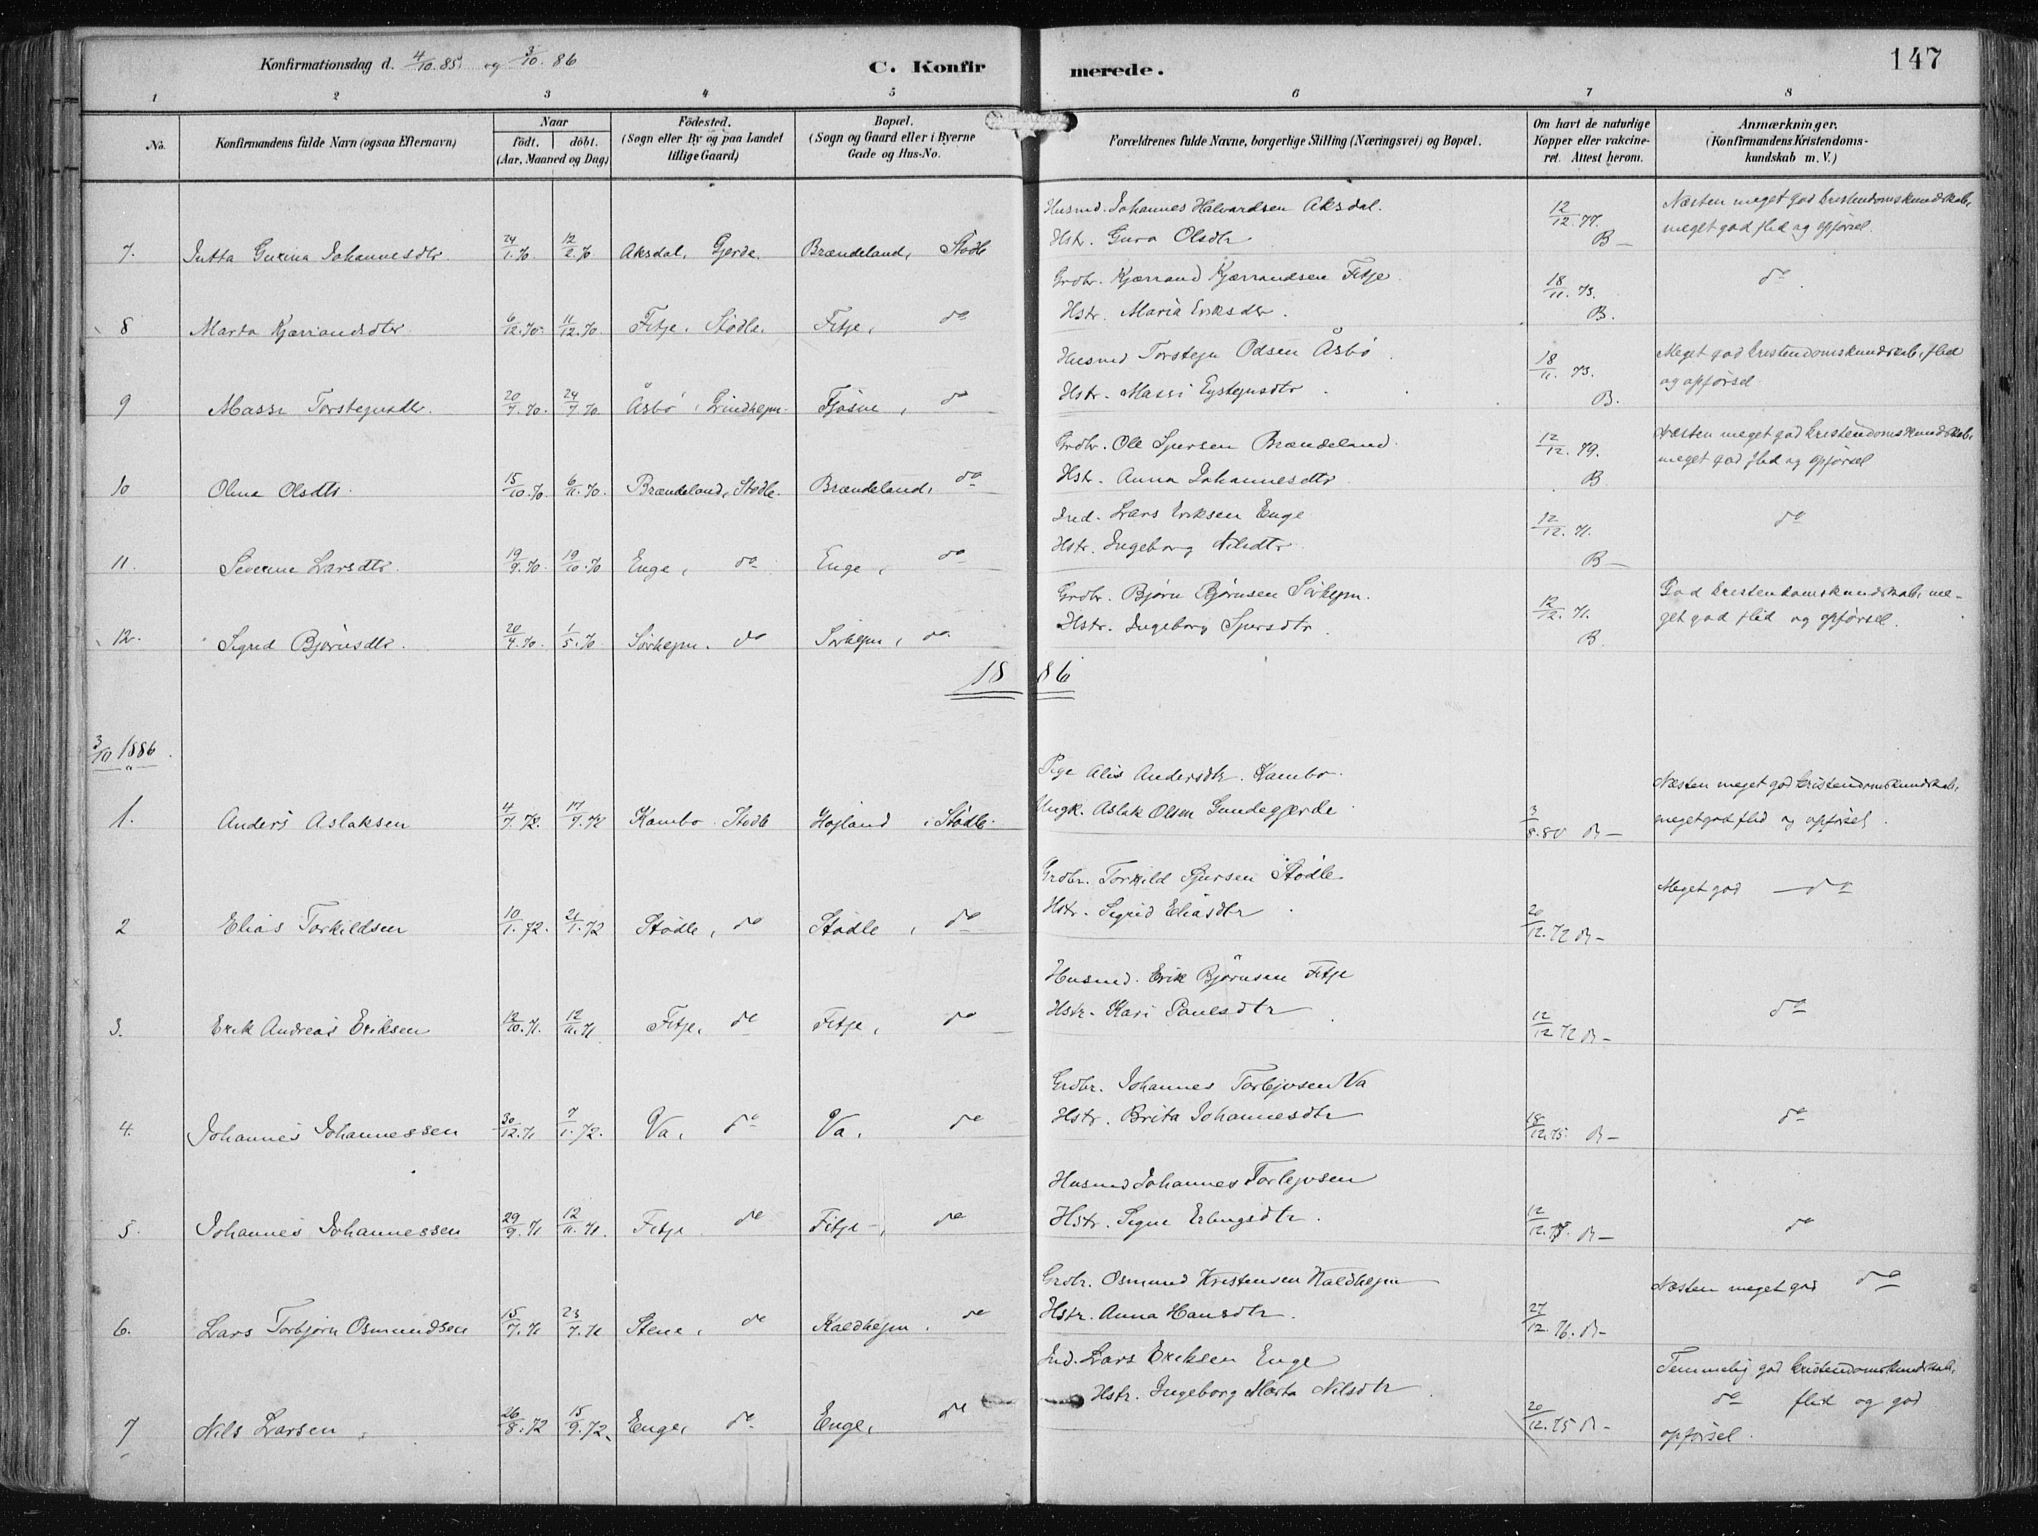 Konfirmationsdag d. 4/10.85. og 3/10.86
C. Konfirmerede.
147
1 2 3 4 5 6 7 8
No.
Konfirmandens fulde Navn (ogsaa Efternavn)
Naar
födt. döbt.
(Aar, Maaned og Dag)
Födested.
(Sogn eller By og paa Landet
tillige Gaard)
Bopæl.
(Sogn og Gaard eller i Byerne
Gade og Hus-No.
Forældrenes fulde Navne, borgerlige Stilling (Næringsvei) og Bopæl.
Om havt de naturlige
Kopper eller vakcine-
ret. Attest herom.
Anmærkninger.
(Konfirmandens Kristendoms-
kundskab m. V.)
Husmd. Johannes Halvardsen Aksdal.
Hstr. Guro Olsdtr
7. Jutta Gurina Johannesdtr. 24/1.70 12/2.70 Aksdal, Gjerde. Brændeland, Stødle 12/12.77. B—
Næsten meget god kristendomskundskab,
meget god flid og opførsel.
Grdbr. Kjærrand Kjærrandsen Fitje.
Hstr. Maria Eriksdtr.
8 Marta Kjærrandsdtr. 6/12.70. 11/12.70 Fitje, Stødle. Fitje, do 18/11.73. B. do
Husmd Torstejn Odsen Åsbø.
Hstr. Massi Eystejnsdtr.
9 Massi Torstejnsdtr. 20/7.70. 24/7.70 Åsbø, Grindhejm. Fjøsne, do 18/11.73. B.
Meget god kristendomskundskab, flid
og opførsel
Grdbr. Ole Sjursen Brændeland.
Hstr. Anna Johannesdtr
10 Olina Olsdtr. 15/10.70. 6/11.70. Brændeland, Stødle. Brændeland, do 12/12.79. B
Næsten meget god kristendomskundskab,
meget god flid og opførsel
Ind. Lars Eriksen Enge
Hstr. Ingeborg Nilsdtr.
11. Severine Larsdtr. 19/9.70. 19/10.70 Enge, do Enge, do 12/12.71. B— do
Grdbr. Bjørn Bjørnsen Sørhejm.
Hstr. Ingeborg Sjursdtr.
12. Sigrid Bjørnsdtr. 20/4.70. 1/5.70 Sørhejm. do Sørhejm, do. 12/12.71. B
God kristendomskundskab, me-
get god flid og opførsel.
1886
3/10 1886.
Pige Alis Andersdtr. Kambo.
Ungk. Aslak Olsen Gundegjerde
1. Anders Aslaksen 4/7.72. 17/7.72 Kambo. Stødle Højland, Stødle. 3/8.80 B—
Næsten meget god kristendomskundskab,
meget god flid og opførsel.
Grdbr. Torkild Sjursen Stødle
Hstr. Sigrid Eliasdtr.
2 Elias Torkildsen 10/1.72. 21/1.72 Stødle, do Stødle, do 20/12.72 B—
Meget god — do
Husmd. Erik Bjørnsen Fitje
Hstr. Kari Paulsdtr.
3. Erik Andreas Eriksen 12/10.71. 12/11.71 Fitje, do Fitje, do 12/12 72 B— do
Grdbr. Johannes Torbjøsen Va
Hstr. Brita Johannesdtr
4. Johannes Johannessen 30/12.71 7/1.72. Va, do Va, do 18/12.75. B— do
Husmd Johannes Torlejvsen
Hstr. Signe Erlingsdtr.
5. Johannes Johannessen 29/9.71 12/11.71. Fitje. do Fitje, do B— do
Grdbr. Osmund Kristensen Kaldhejm
Hstr. Anna Hansdtr.
6. Lars Torbjørn Osmundsen 15/7.71 23/7.71 Stena, do Kaldhejm, do 27/12.76. B—
Næsten meget god do
Ind. Lars Eriksen Enge
Hstr. Ingeborg Marta Nilsdtr.
7 Nils Larsen 26/8.72 15/9.72. Enge, do Enge, do 20/12.75 B—
Temmelig god kristendomskundskab,
do flid og god
opførsel.